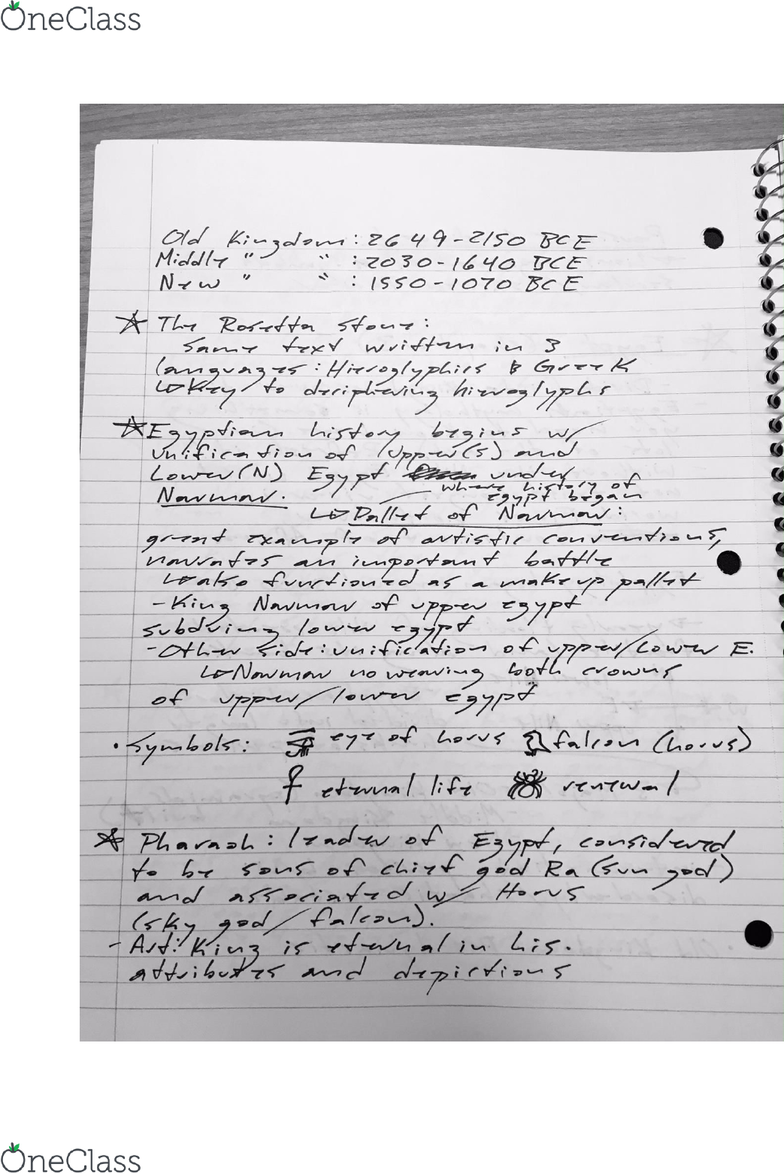 OneClass
Old Kingdom: 2649-2150 BCE
Middle " " : 2030-1640 BCE
New " " : 1550-1070 BCE
The Rosetta Stone:
same text written in 3
languages: Hieroglyphics & Greek
↳ Key to deciphering hieroglyphs
Egyptian history begins w/
unification of Upper(S) and
Lower(N) Egypt under
where history of
egypt began
Narmar.
↳ Pallet of Narmar:
great example of artistic conventions,
narrates an important battle
↳ also functioned as a makeup pallet
- King Narmar of upper egypt
subduing lower egypt
- Other side: unification of upper/Lower E.
↳ Narmar no wearing both crowns
of upper/lower egypt
• Symbols: eye of horus falcon (horus)
eternal life renewal
Pharaoh: leader of Egypt, considered
to be sons of chief god Ra (sun god)
and associated w/ Horus
(sky god/falcon).
- Art: King is eternal in his.
attributes and depictions
OneClass